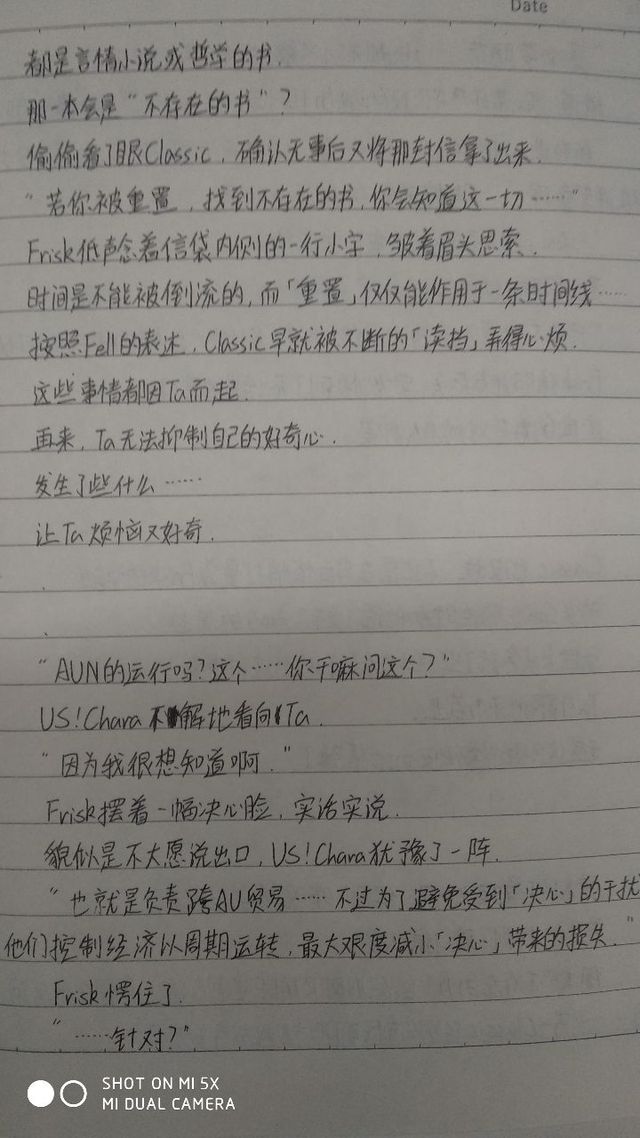 Date
都是言情小说或哲学的书.
那一本会是“不存在的书”?
偷偷看了眼Classic, 确认无事后又将那封信拿了出来.
“若你被重置, 找到不存在的书, 你会知道这一切……”
Frisk低声念着信袋内侧的一行小字, 皱着眉头思索.
时间是不能被倒流的, 而「重置」仅仅能作用于一条时间线……
按照Fell的表述, Classic早就被不断的「读档」弄得心烦.
这些事情都因Ta而起.
再来, Ta无法抑制自己的好奇心.
发生了些什么……
让Ta烦恼又好奇.
“AUN的运行吗? 这个……你干嘛问这个?”
US!Chara不解地看向Ta.
“因为我很想知道啊.”
Frisk摆着一幅决心脸, 实话实说.
貌似是不太愿说出口, US!Chara犹豫了一阵.
“也就是负责跨AU贸易……不过为了避免受到「决心」的干扰
他们控制经济以周期运转, 最大限度减小「决心」带来的损失.”
Frisk愣住了.
“……针对?”
SHOT ON MI 5X
MI DUAL CAMERA